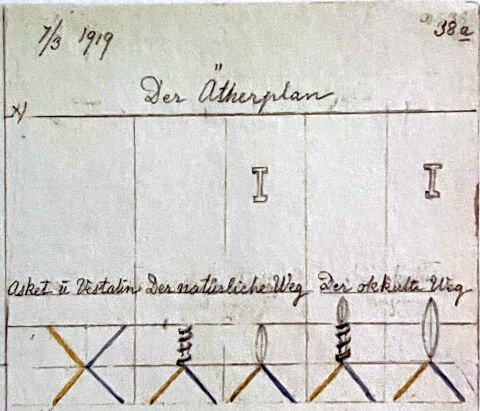 7/3 1919
38a
Der Ätherplan
x)
I I
Asket u Vestalin Der natürliche Weg Der okkulte Weg